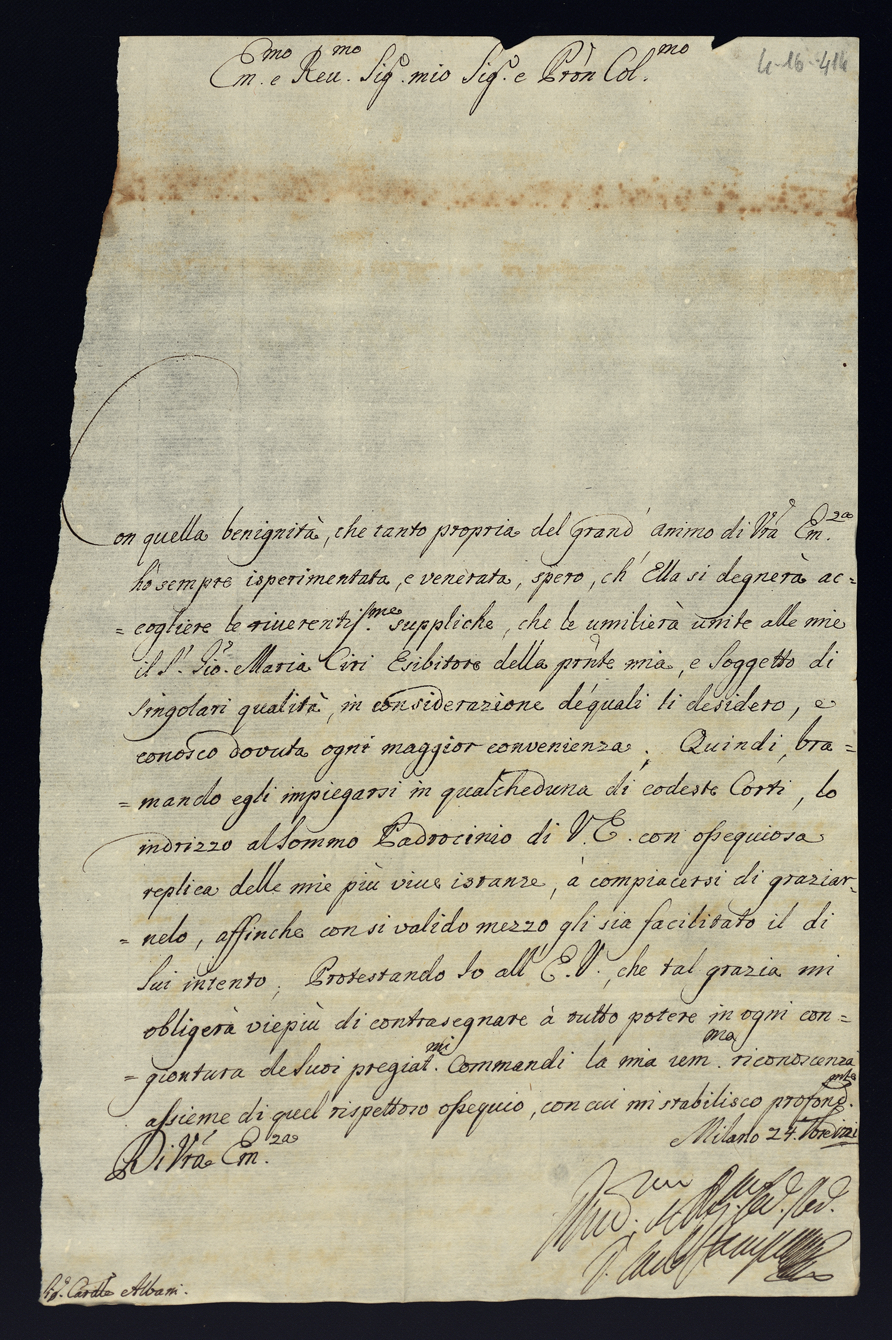 4-16-414
Em.mo e Reu.mo Sig.e mio Sig.e e Pron Col.mo
on quella benignità, che tanto propria del grand' animo di Vra Em.za
hò sempre isperimentata, e venerata, spero, ch' Ella si degnerà ac=
=cogliere le riuerentiss.me suppliche, che le umilierà unite alle mie
il S.r Gio. Maria Ciri Esibitore della prnte mia, e Soggetto di
singolari qualità, in considerazione de' quali li desidero, e
conosco dovuta ogni maggior convenienza; Quindi, bra=
=mando egli impiegarsi in qualcheduna di codeste Corti, lo
indrizzo al Sommo Padrocinio di V.E. con ossequiosa
replica delle mie più viue istanze, à compiacersi di graziar=
=nelo, affinche con si valido mezzo gli sia facilitato il di
Lui intento; Protestando Io all' E.V., che tal grazia mi
obligerà viepiù di contrasegnare à tutto potere in ogni con=
=giontura de Suoi pregiat.mi Commandi la mia rem.ma riconoscenza
assieme di quel rispettoso ossequio, con cui mi stabilisco profond.mte
Di Vra Em.za
Milano 24.
Sig. Cardle Albani.